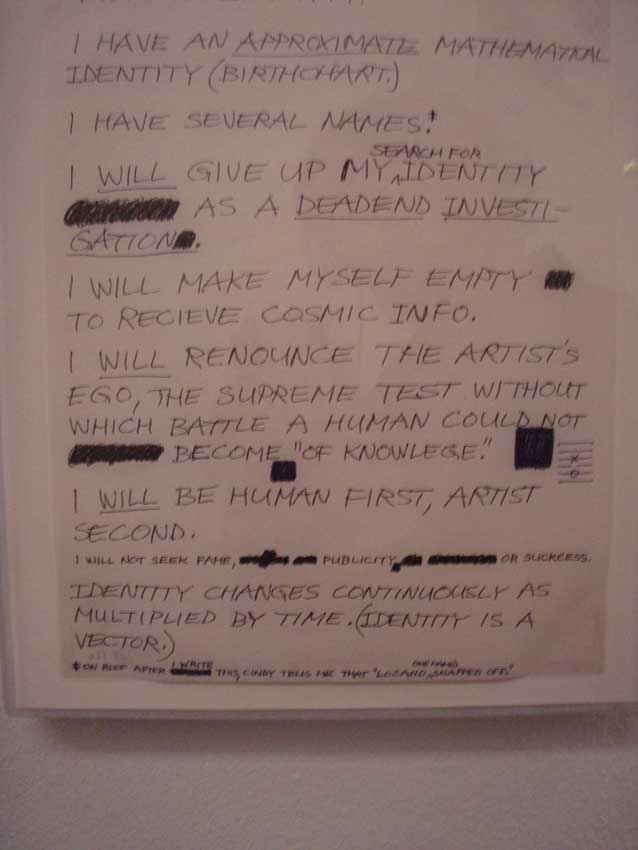 I HAVE AN APPROXIMATE MATHEMATICAL
IDENTITY (BIRTHCHART.)
I HAVE SEVERAL NAMES.*
SEARCH FOR
I WILL GIVE UP MY IDENTITY
AS A DEADEND INVESTI-
GATION.
I WILL MAKE MYSELF EMPTY
TO RECIEVE COSMIC INFO.
I WILL RENOUNCE THE ARTIST'S
EGO, THE SUPREME TEST WITHOUT
WHICH BATTLE A HUMAN COULD NOT
BECOME "OF KNOWLEGE."
I WILL BE HUMAN FIRST, ARTIST
SECOND.
I WILL NOT SEEK FAME, PUBLICITY OR SUCKCESS.
IDENTITY CHANGES CONTINUOUSLY AS
MULTIPLIED BY TIME. (IDENTITY IS A
VECTOR.)
I WRITE
* ON ROOF AFTER THIS, CINDY TELLS ME THAT SNAPPED OFF."